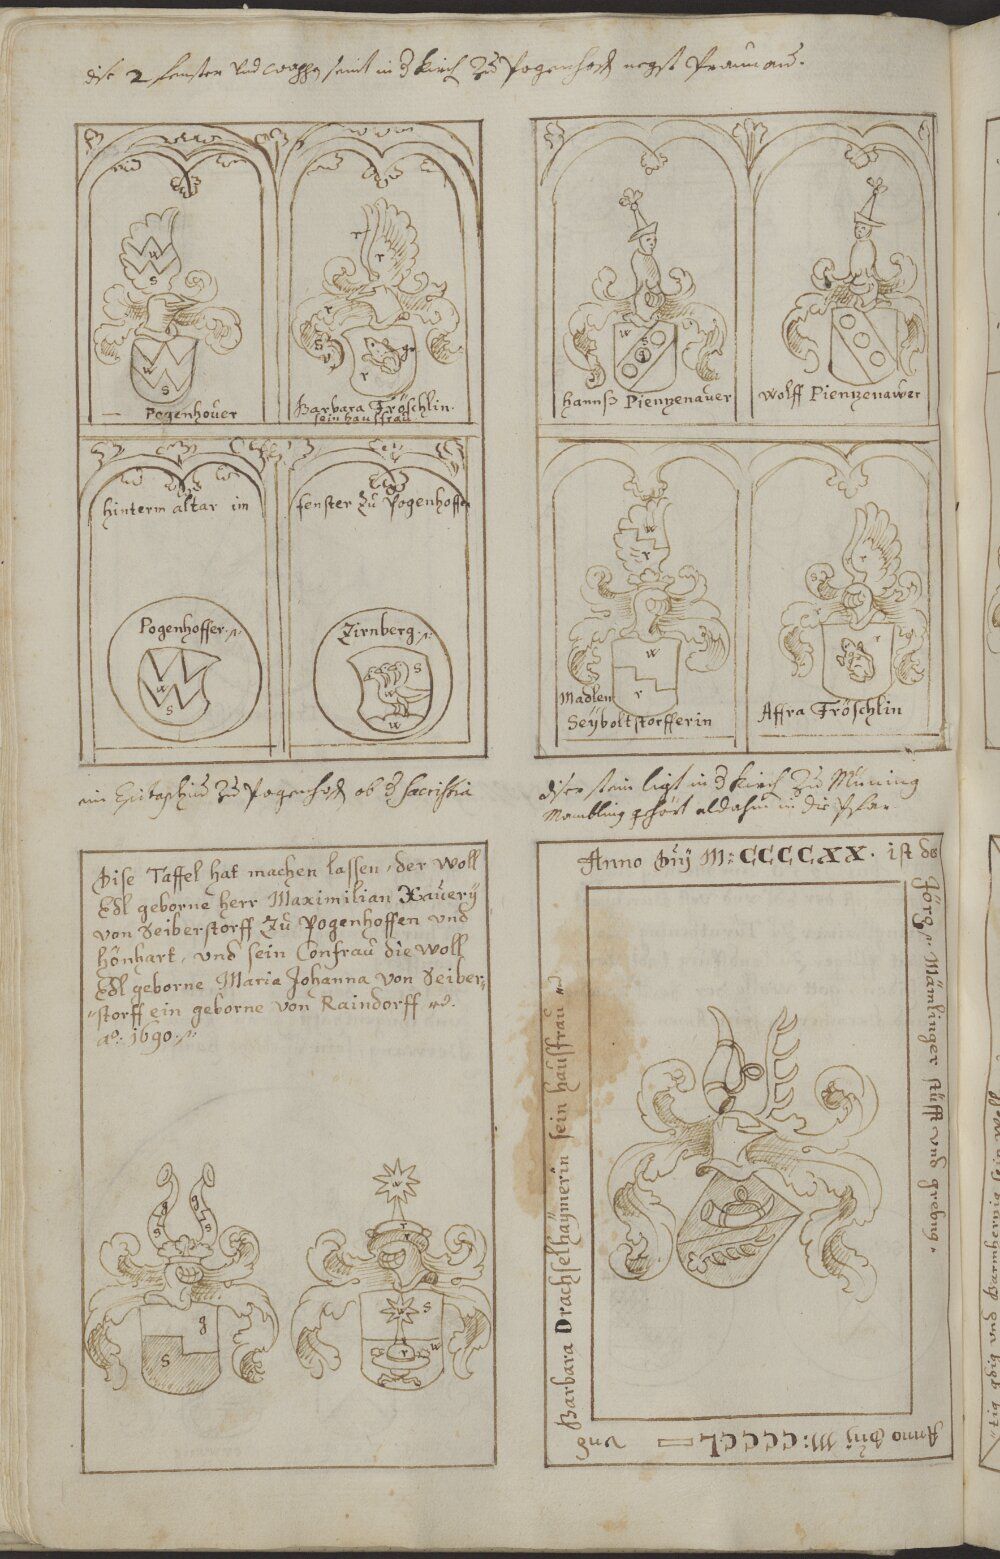 dise 2 fenster und wappen seint in d kirch Zu Pogenhofen negst Praunau.
Pogenhouer
Barbara Fröschlin.
sein hausfrau
hannß Pienzenauer
Wolff Pienzenawer
hinterm altar im
fenster Zu Pogenhoffen
Pogenhoffer
Zirnberg
Madlen
Seÿboltstorfferin
Affra Fröschlin
ein Epitaphium Zu Pogenhofen ob d sacristia
diser stein ligt in d kirch Zu Müning
Mambling ghört aldahin in die Pfar
Dise Taffel hat machen lassen, der woll
Edl geborne herr Maximilian Xauerÿ
von Seiberstorff Zu Pogenhoffen und
hönhart, und sein Confrau die woll
Edl geborne Maria Johanna von Seiber,
storff ein geborne von Raindorff
aº: 1690
Anno Dnÿ M: CCCCXX. ist ds
Jörg Mämlinger stüfft und grebnus.
Anno Dnÿ M: CCCCL
und
Barbara Drachselhaÿmerin sein hausfrau